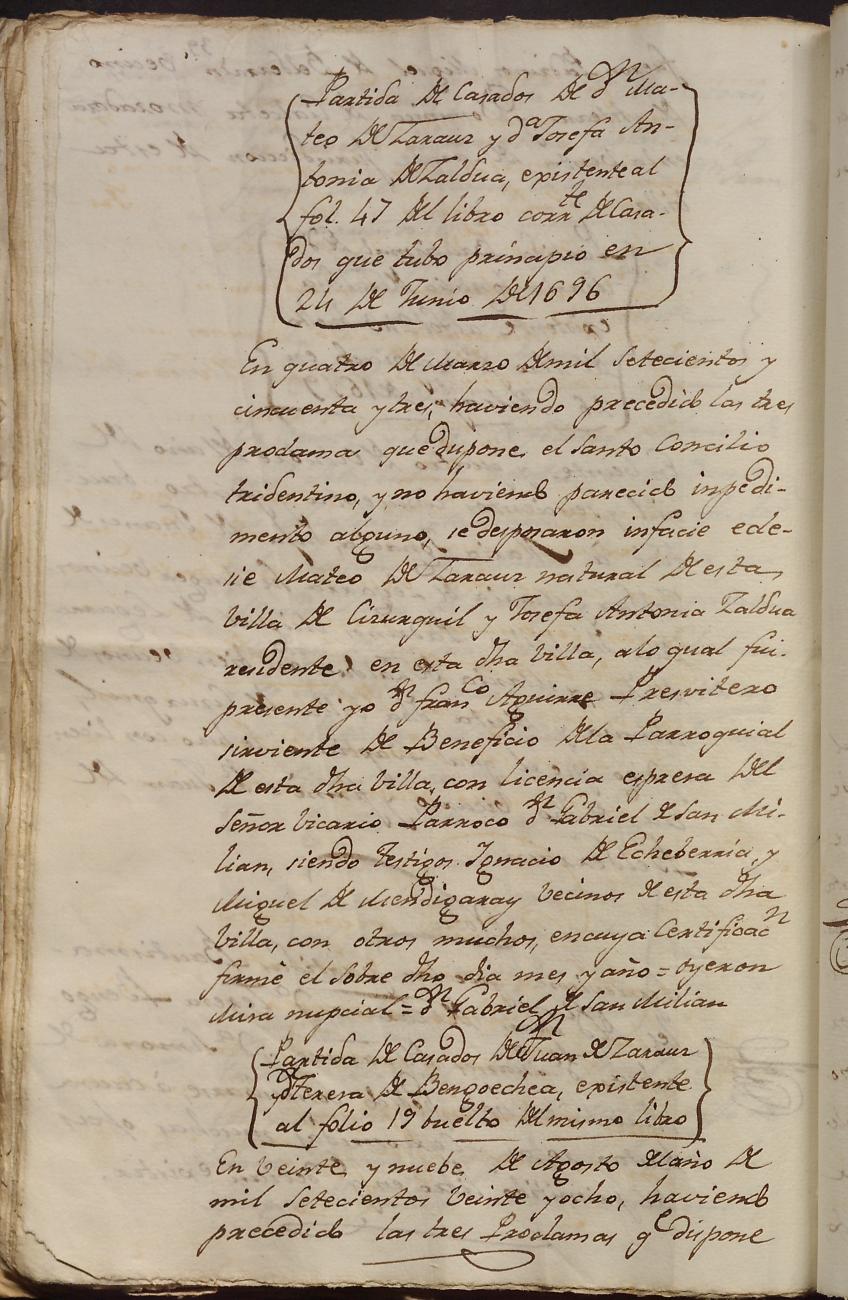 Partida de Casados de Dn Ma-
teo de Zarauz y da Josefa An-
tonia de Zaldua, existente al
fol. 47 del libro corrte de Casa-
dos que tubo principio en
24 de Junio de 1696
En quatro de Marzo de mil Setecientos y
cincuenta y tres, haviendo precedido las tres
proclama que dispone el Santo Concilio
tridentino, y no haviendo parecido inpedi-
mento alguno, se desposaron infacie ecle-
sie Mateo de Zarauz natural de esta
Villa de Cizurquil y Josefa Antonia Zaldua
residente en esta dha Villa, alo qual fui
presente yo dn Franco Aguirre Presvitero
sirviente de Beneficio dela Parroquial
de esta dha Villa, con licencia espresa del
Señor Vicario Parroco dn Gabriel de San Mi-
lian, siendo Testigos Ignacio de Echeberria, y
Miguel de Mendigaray Vecinos de esta dha
Villa, con otros muchos, en cuya Certificacn
firmé el sobre dho dia mes y año = oyeron
Misa nupcial = dn Gabriel de San Milian
Partida de Casados de Dn Juan de Zarauz
y da Teresa de Bengoechea, existente
al folio 19 buelto del mismo libro
En Veinte y nuebe de Agosto del año de
mil Setecientos Veinte y ocho, haviendo
precedido las tres Proclamas qe dispone